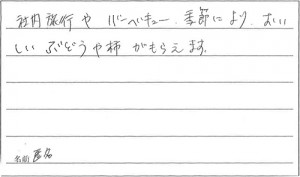 社内旅行や バーベキュー、季節により、おいし
しい ぶどうや柿がもらえます。
名前 匿名